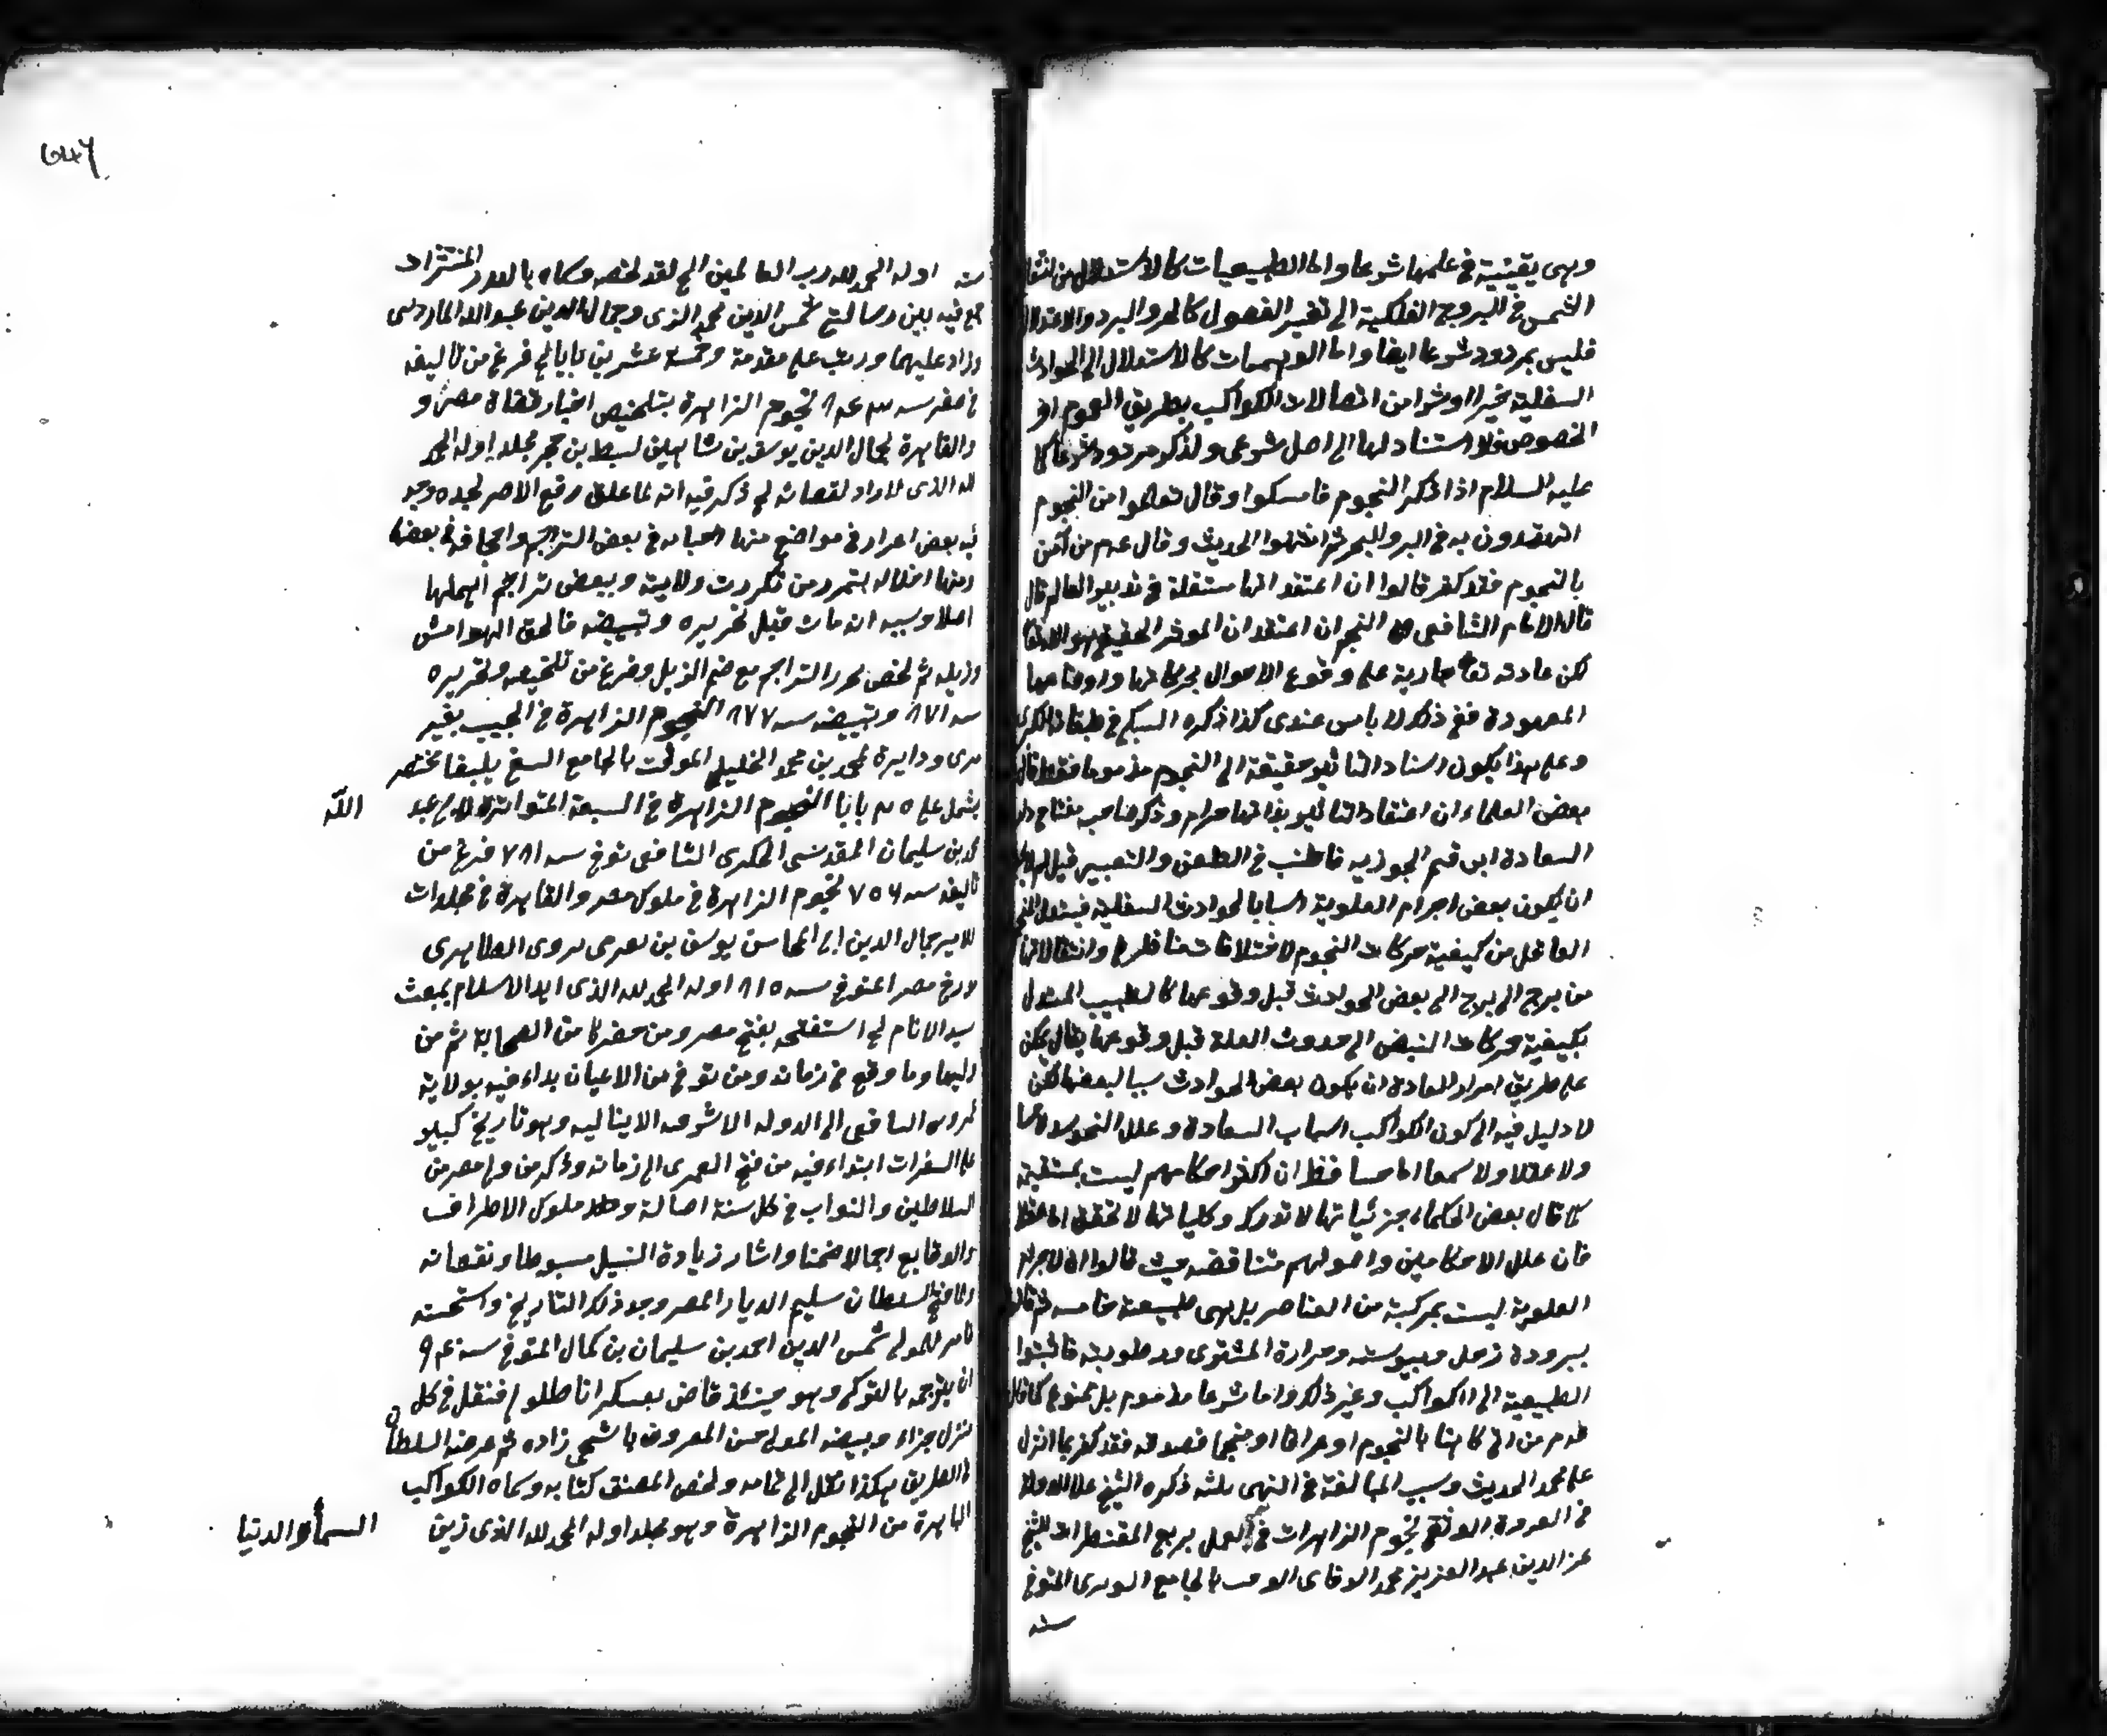 وهى يقينية فى علمها شرعا واما الطبيعيات كالاستدلال من انتقال
الشمس فى البروج الفلكية الى تغير الفصول كالحر والبرد والاعتدال
فليس بمردود شرعا ايضا واما الوهميات كالاستدلال الى الحوادث
السفلية خيرا او شرا من اتصالات الكواكب بطريق العموم او
الخصوص فلا استناد لها الى اصل شرعى ولذلك مردود شرعا كما
عليه السلام اذا ذكر النجوم فامسكوا وقال تعلموا من النجوم
ما تهتدون به فى البر والبحر ثم انتهوا الحديث وقال عم من آمن
بالنجوم فقد كفر قالوا ان اعتقد انها مستقلة فى تدبير العالم قال
قال الامام الشافعى النجم ان اعتقد ان الموثر الحقيقى هو الله تعالى
لكن عادته تعا جارية على وقوع الاحوال بحركاتها واوضاعها
المعهودة ففى ذلك لا باس عندى كذا ذكره السبكى فى طبقاته الكبرى
وعلى هذا يكون اسناد التاثير حقيقة الى النجوم مذموما فقط قال
بعض العلماء ان اعتقاد التاثير بذاتها حرام وذكر صاحب مفتاح دار
السعادة ابن قيم الجوزيه فاطنب فى الطعن والتعبير قيل لم لا يجوز
ان يكون بعض اجرام العلوية اسبابا لحوادث السفلية فيستدل المنجم
العاقل من كيفية حركات النجوم لاختلافات مناظرها وانتقالاتها
من برج الى برج الى بعض الحوادث قبل وقوعها كالطبيب المستدل
بكيفية حركات النبض الى حدوث العلة قبل وقوعها يقال يمكن
على طريق اجراء العادة ان يكون بعض الحوادث سببا لبعضها لكن
لا دليل فيه الى كون الكواكب اسباب السعادة وعلل النحوسة لا حسا
ولا عقلا ولا سمعا اما حسا فظ ان اكثر احكامهم ليست بمستقيمة
كما قال بعض الحكماء جزئياتها لا تدرك وكلياتها لا تحقق اما عقلا
فان علل الاحكاميين واصولهم متناقضه حيث قالوا ان الاجرام
العلوية ليست بمركبة من العناصر بل هى طبيعة خامسه ثم قالوا
ببرودة زحل ويبوسته وحرارة المشترى ورطوبته فاثبتوا
الطبيعية الى الكواكب وغير ذلك واما شرعا مذموم بل ممنوع كما قال
عم من اتى كاهنا بالنجوم او عرافا او منجما فصدقه فقد كفر بما انزل
على محمد الحديث وسبب المبالغة فى النهى ثلثه ذكره الشيخ علا الدوله
فى العروة الوثقى نجوم الزاهرات فى العمل بربع المقنطرات للشيخ
عز الدين عبد العزيز محمد الوفاى الموقت بالجامع المويدى المتوفى
سنه
سنه اوله الحمد لله رب العالمين الخ لقد لخصه وسماه بالدرر المنتثرات
جمع فيه بين رسالتى شمس الدين محمد المزى وجمال الدين عبد الله الماردينى
وزاد عليهما ورتب على مقدمة وخمسة عشرين بابا الخ فرغ من تاليفه
فى صفر سنه ٨٤٣ نجوم الزاهرة بتلخيص اخبار قضاة مصر و
والقاهرة لجمال الدين يوسف بن شاهين لسبط بن حجر مجلد اوله الحمد
لله الذى لا راد لقضائه الخ ذكر فيه انه لما علق رفع الاصر لجده وجد
فيه بعض اعواز فى مواضع منها اسهابه فى بعض التراجم واجحافه فى بعضها
ومنها اخلاله بتمرد من تكررت ولايته وببعض تراجم اهملها
اصلا وسببه انه مات قبل تحريره وتبييضه فالحق الهوامش
وذيله ثم لخص محرر التراجم مع ضم الذيل وفرغ من تلخيصه وتحريره
سنه ٨٧١ وتبييضه سنه ٨٧٧ النجوم الزاهرة فى الجيب بغير
مرى ودايرة لمحمد بن محمد الخليلى الموقت بالجامع يلبغا مختصر
يشمل على بابا النجوم الزاهرة فى السبعة المتواترة لابى عبد الله
محمد بن سليمان المقدسى الحكرى الشافعى توفى سنه ٧٨١ فرغ من
تاليفه سنه ٧٥٦ نجوم الزاهرة فى ملوك مصر والقاهرة فى مجلدات
للامير جمال الدين ابى المحاسن يوسف بن تغرى بردى الظاهرى
مورخ مصر المتوفى سنه ٨١٥ اوله الحمد لله الذى ايد الاسلام بمبعث
سيد الانام الخ استفتحه بفتح مصر ومن حضرها من الصحابة ثم من
وليها وما وقع فى زمانه ومن توفى من الاعيان بداء فيه بولاية
عمرو الى الدوله الاشرفيه الاينالية وهو تاريخ كبير
على السنوات ابتداء فيه من فتح العمرى الى زمانه وذكر من ولى مصر من
السلاطين والنواب فى كل سنة اصالة ملوك الاطراف
والوقايع اجمالا ضمنا واشار زيادة النيل مبسوطا ونقصانه
ولما فتح السلطان سليم الديار المصر وجد ذلك التاريخ واستحسنه
فامر للمولى شمس الدين احمد بن سليمان بن كمال المتوفى سنه ٩٤٠
ان يترجمه بالتركى وهو حينئذ قاض بعسكر اناطولى فنقل فى كل
منزل جزاء وبيضه المولى حسن المعروف باشجى زاده ثم عرضه السلطان
فى الطريق هكذا نقل الى تمامه ولخص المصنف كتابه وسماه الكواكب
الباهرة من النجوم الزاهرة وهو مجلد اوله الحمد لله الذى زين السماء الدنيا